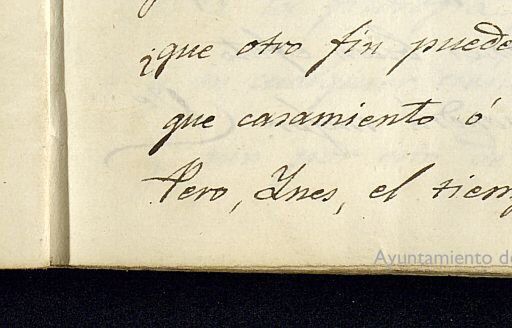 ¿que otro fin puede
que casamiento ó
Pero, Ynes, el tiem
Ayuntamiento de